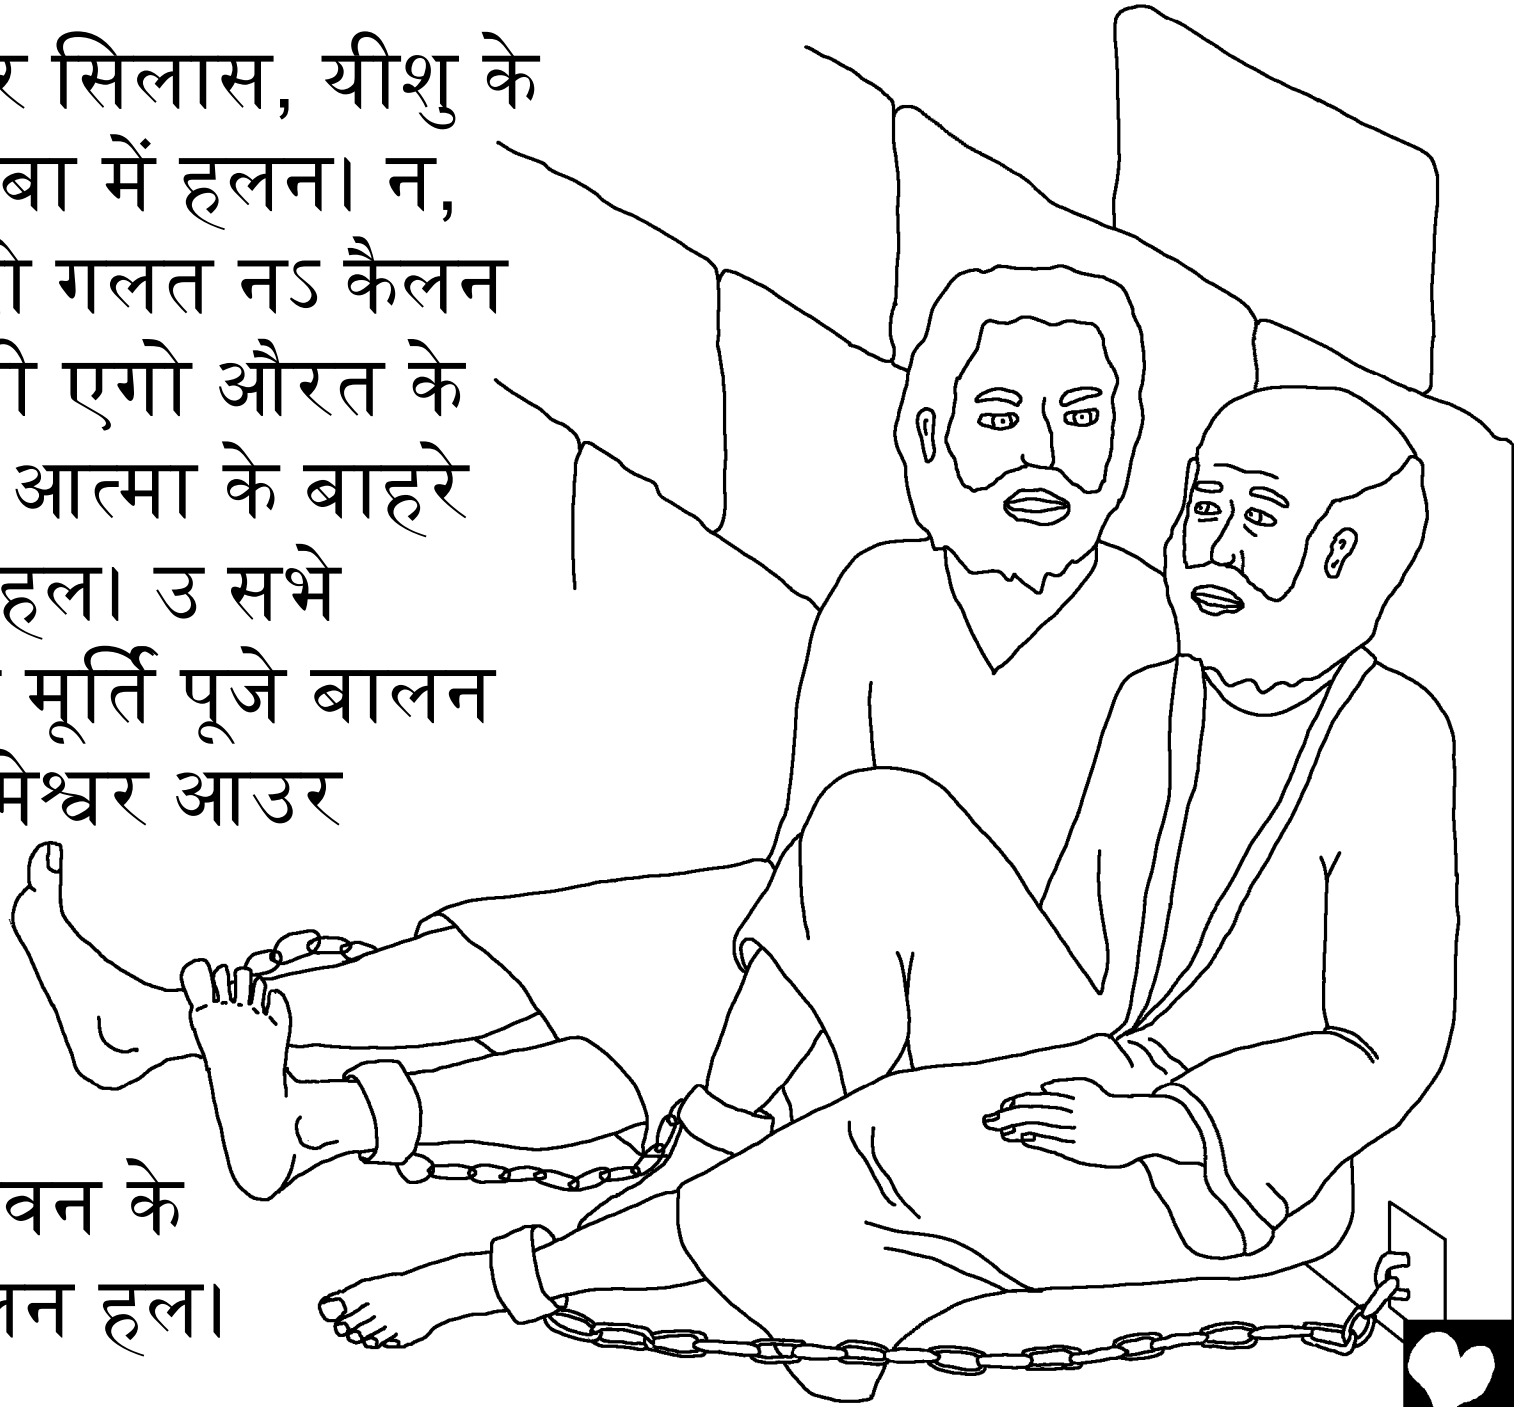 सिलास, यीशु के
में हलन। न,
गलत नऽ कैलन
एगो औरत के
आत्मा के बाहरे
हल। उ सभे
मूर्ति पूजे बालन
आउर
के
हल।